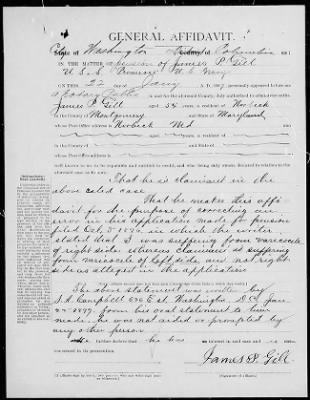 GENERAL AFFIDAVIT.
City of Washington District of Columbia ss:
IN THE MATTER OF pension of James P. Gill
U. S. S. U. S. Navy
ON THIS 22 day of Jany A. D. 1897, personally appeared before me
a Notary Public in and for the aforesaid County, duly authorized to administer oaths,
James P. Gill aged 54 years, a resident of Norbeck
in the County of Montgomery and State of Maryland
whose Post-office address is Norbeck Md
aged years, a resident of
in the County of and State of
whose Post-office address is
well known to me to be reputable and entitled to credit, and who being duly sworn, declared in relation to the
aforesaid case as follows:
That he is claimant in the
above entitled case
That he makes this affi
davit for the purpose of correcting an
error in his application made for pension
filed Oct, 5 1896, in which the writer
stated that I was suffering from varicocele
of right side whereas claimant is suffering
from varicocele of left side and not right
side as alleged in the application
The above statement was written by
J. A. Campbell 636 E st. Washington D.C. Jan.
22 1897, from his oral statement to him
made, he was not aided or prompted by
any other person.
He further declare that he has no interest
in the prosecution.
James P. Gill
(Signature of Affiant.)